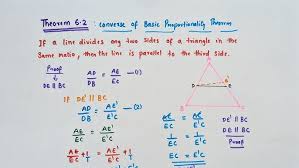 Theorem 6.2 : Converse of Basic Proportionality Theorem
If a line divides any two sides of a triangle in the
Same ratio, then the line is parallel to the third side.
Proof
↑
DE || BC
AD/DB = AE/EC —(1)
If DE' || BC
AD/DB = AE'/E'C —(2)
AE/EC = AE'/E'C
AE/EC + 1 = AE'/E'C + 1
A
D
E
E'
B
C
EC E'C
1/EC = 1/E'C
EC = E'C
DE' || BC
↓
DE || BC